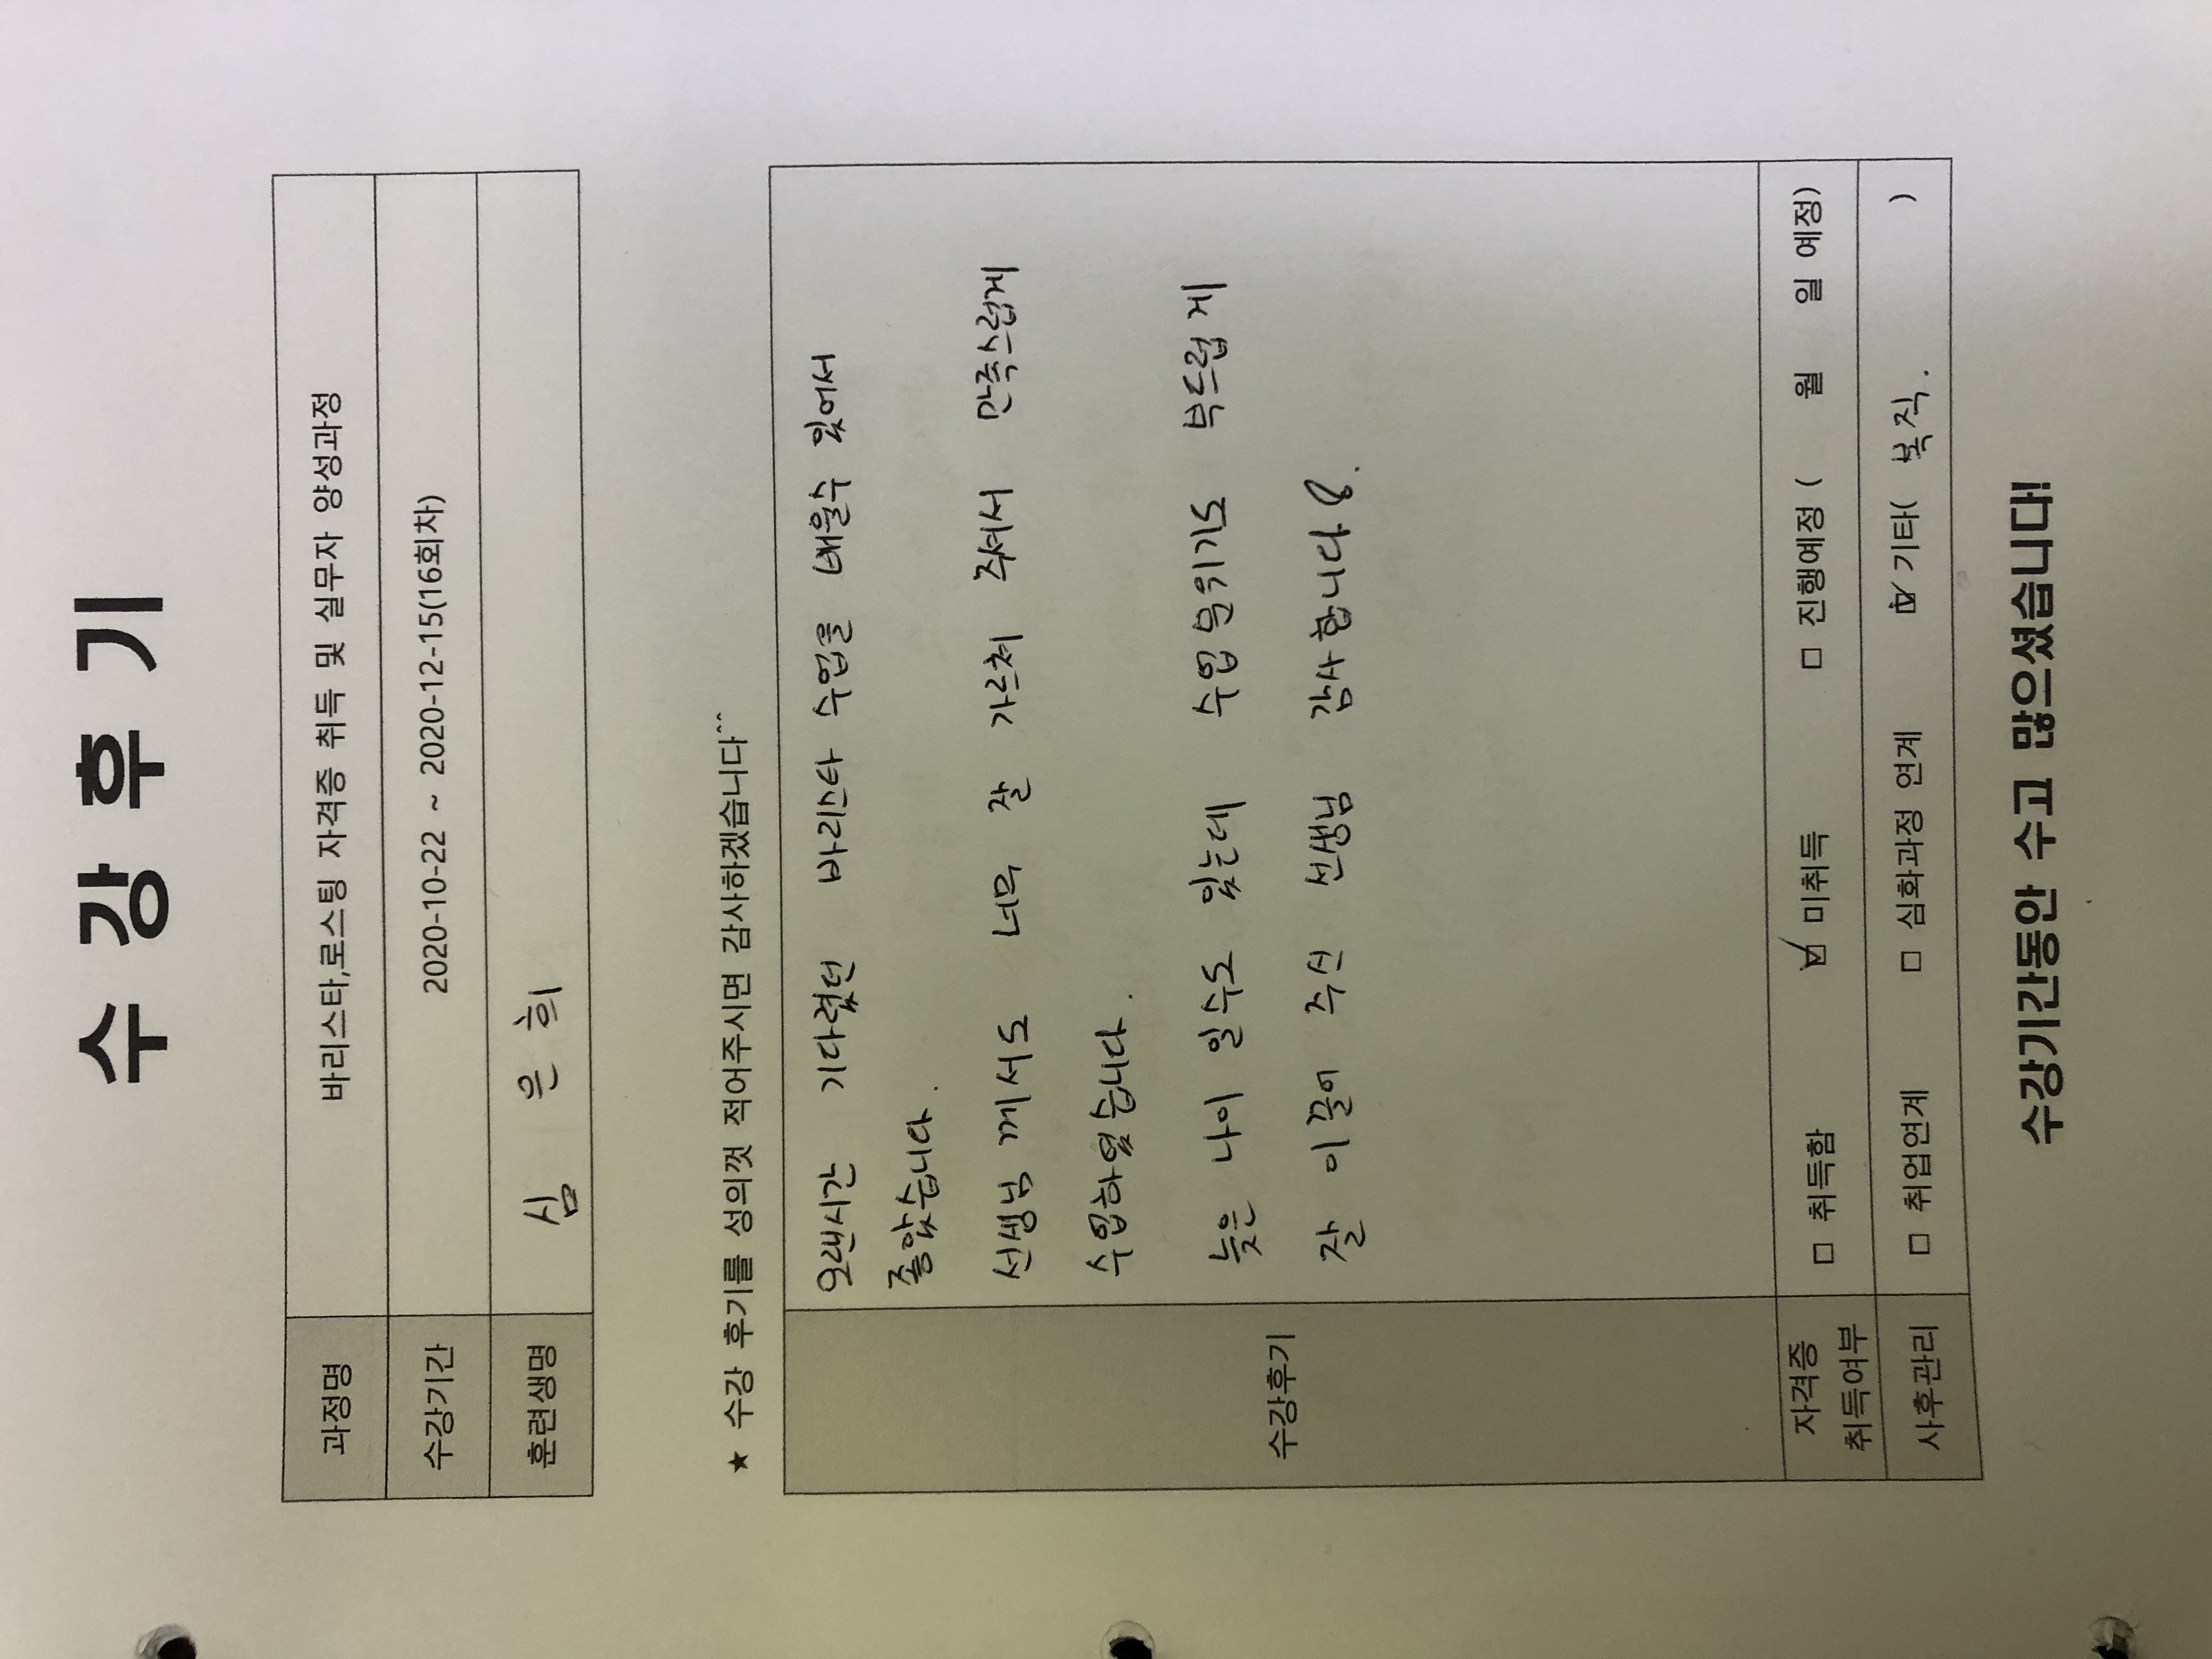 수 강 후 기
과정명 바리스타,로스팅 자격증 취득 및 실무자 양성과정
수강기간 2020-10-22 ~ 2020-12-15(16회차)
훈련생명 심 은 희
★ 수강 후기를 성의껏 적어주시면 감사하겠습니다^^
수강후기
오랜시간 기다렸던 바리스타 수업을 배울수 있어서
좋았습니다.
선생님 께서도 너무 잘 가르쳐 주셔서 만족스럽게
수업하였습니다.
늦은 나이 일수도 있는데 수업 분위기도 부드럽게
잘 이끌어 주신 선생님 감사합니다.
자격증 취득여부 □ 취득함 ☑ 미취득 □ 진행예정 ( 월 일 예정)
사후관리 □ 취업연계 □ 심화과정 연계 ☑ 기타( 복직. )
수강기간동안 수고 많으셨습니다!